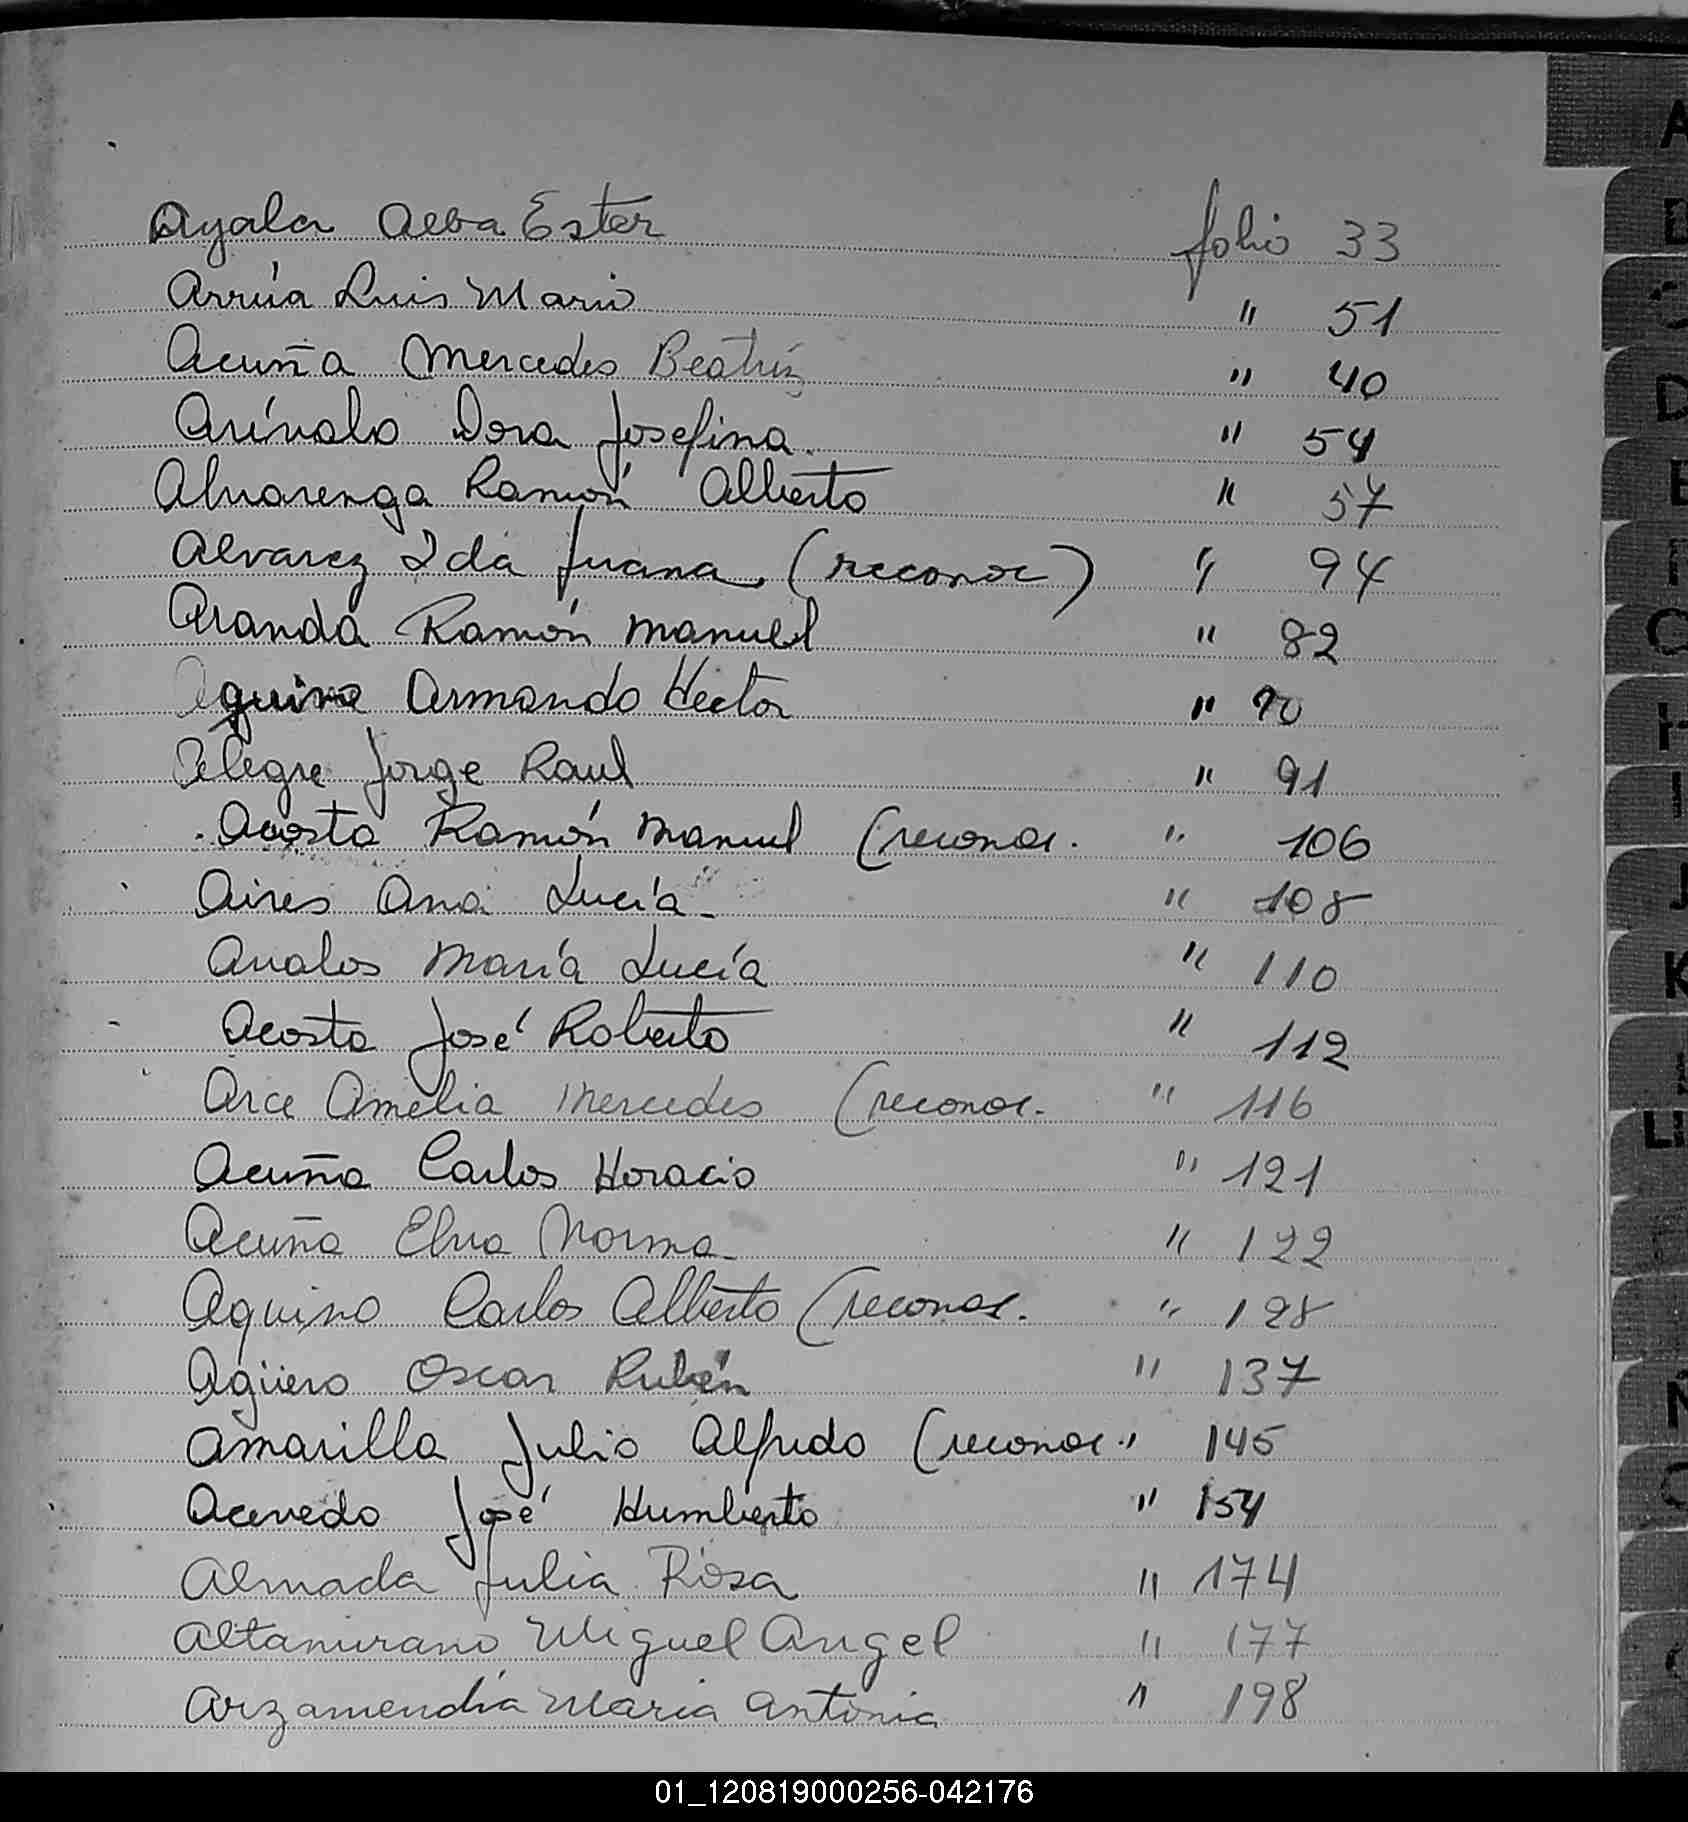 Ayala Alba Ester folio 33
Arrúa Luis Mario " 51
Acuña Mercedes Beatríz " 40
Arévalo Dora Josefina " 54
Alvarenga Ramón Alberto " 57
Alvarez Ida Juana (reconoc) " 94
Aranda Ramón Manuel " 82
Aquino Armando Hector " 90
Alegre Jorge Raul " 91
Acosta Ramón Manuel (reconoc. " 106
Aires Ana Lucía " 108
Avalos María Lucía " 110
Acosta José Roberto " 112
Arce Amelia Mercedes (reconoc. " 116
Acuña Carlos Horacio " 121
Acuña Elva Norma " 122
Aquino Carlos Alberto (reconoc. " 128
Agüero Oscar Rubén " 137
Amarilla Julio Alfredo (reconoc. " 145
Acevedo José Humberto " 154
Almada Julia Rosa " 174
Altamirano Miguel Angel " 177
Arzamendia Maria Antonia " 198
A
D
H
I
J
K
01_120819000256-042176